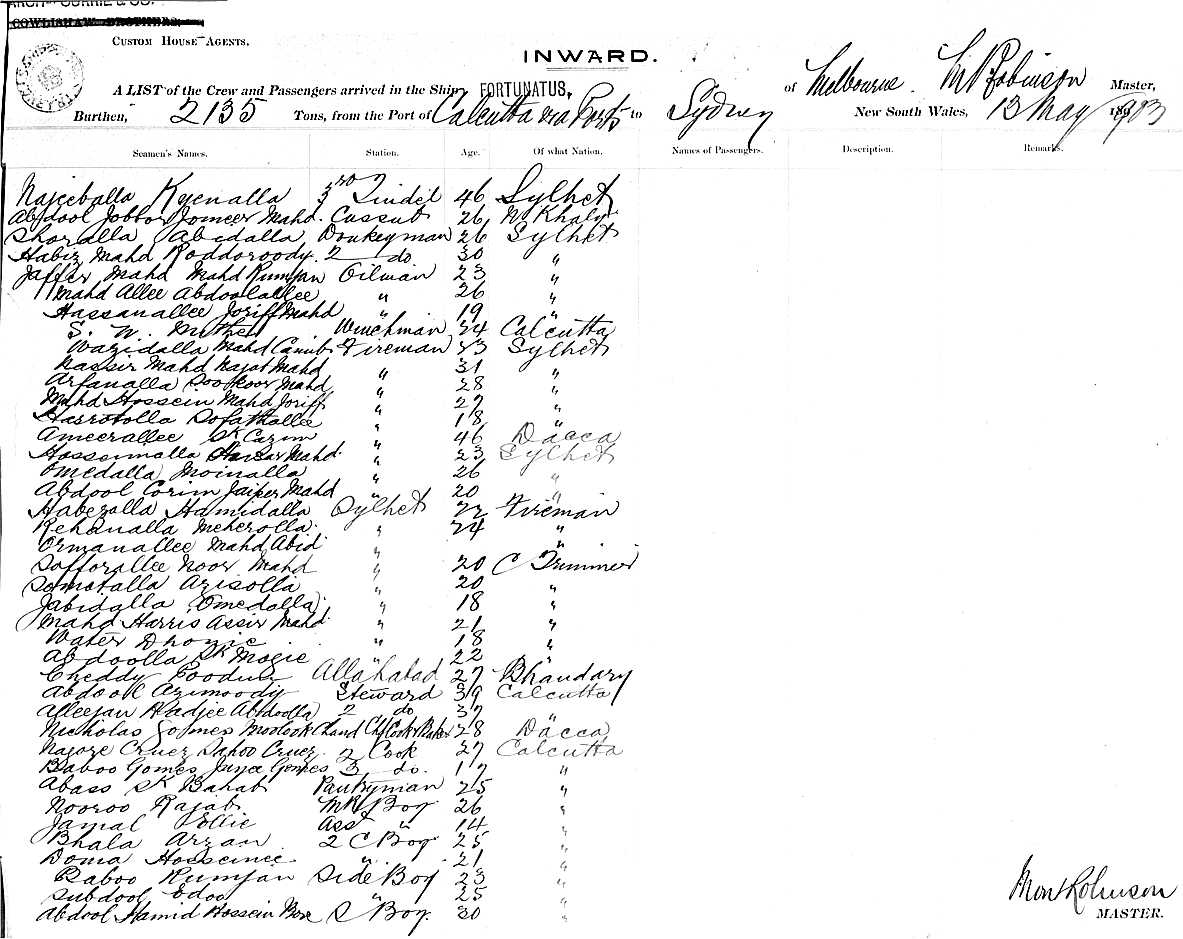 ARCH CURRIE & CO.
COWLISHAW BROTHERS,
CUSTOM HOUSE AGENTS.
INWARD.
A LIST of the Crew and Passengers arrived in the Ship FORTUNATUS, of Melbourne. M Robinson Master,
Burthen, 2135 Tons, from the Port of Calcutta via Ports to Sydney New South Wales, 13 May 1903
Seamen's Names. Station. Age. Of what Nation. Names of Passengers. Description. Remarks.
Najeeballa Kyenalla 3rd Tindel 46 Sylhet
Abdool Jobbor Jomeer Mahd. Cassub 26 N Khaly
Shoralla Abidalla Donkeyman 26 Sylhet
Habiz Mahd Koddoroody. 2 do 30 "
Jaffer Mahd Mahd Rumjan Oilman 23 "
Mahd Allee Abdoolallee " 26 "
Hassanallee Joriff Mahd " 19 "
S. W. Winchman 24 Calcutta
Wazidalla Mahd Camib Fireman 23 Sylhet
Nassir Mahd Najat Mahd " 31 "
Arfanalla Sookoor Mahd " 28 "
Mahd Hossein Mahd Joriff " 27 "
Hasrotolla Sofathallee " 18 "
Ameerallee Sk Carim " 46 Dacca
Hosseinalla Mahd. " 23 Sylhet
Omedalla Moinalla " 26 "
Abdool Corim Jaiper Mahd " 20 "
Habezalla Hamidalla Sylhet 22 Fireman
Rehanalla Meherolla " 24 "
Ormanallee Mahd Abid " "
Sofforallee Noor Mahd " 20 C Trimmer
Sometalla Azisolla " 20 "
Jabidalla Omedalla " 18 "
Mahd Harris Assir Mahd " 21 "
Water " 18 "
Abdoolla Sk Mogie " 22 "
Cheddy Poodun Allahabad 27 Bhandary
Abdool Azimoody Steward 39 Calcutta
Alleejan Hadjee Abdoolla 2 do 37 "
Nicholas Gomes Moolook Chand Ch Cook & Baker 28 Dacca
Najore Cruez Dahoo Cruez. 2 Cook 27 Calcutta
Baboo Gomes Gomes 3 do. 17 "
Abass Sk Bahab Pantryman 25 "
Nooroo Rajab MR Boy 26 "
Jamal Ellie Asst " 14 "
Bhala Arzan 2 C Boy 25 "
Doma Hosseinee " 21 "
Baboo Rumjan Side Boy 23 "
Subdool Edoo " 25 "
Abdool Hamid Hossein Box S Boy. 30 "
Robinson
MASTER.